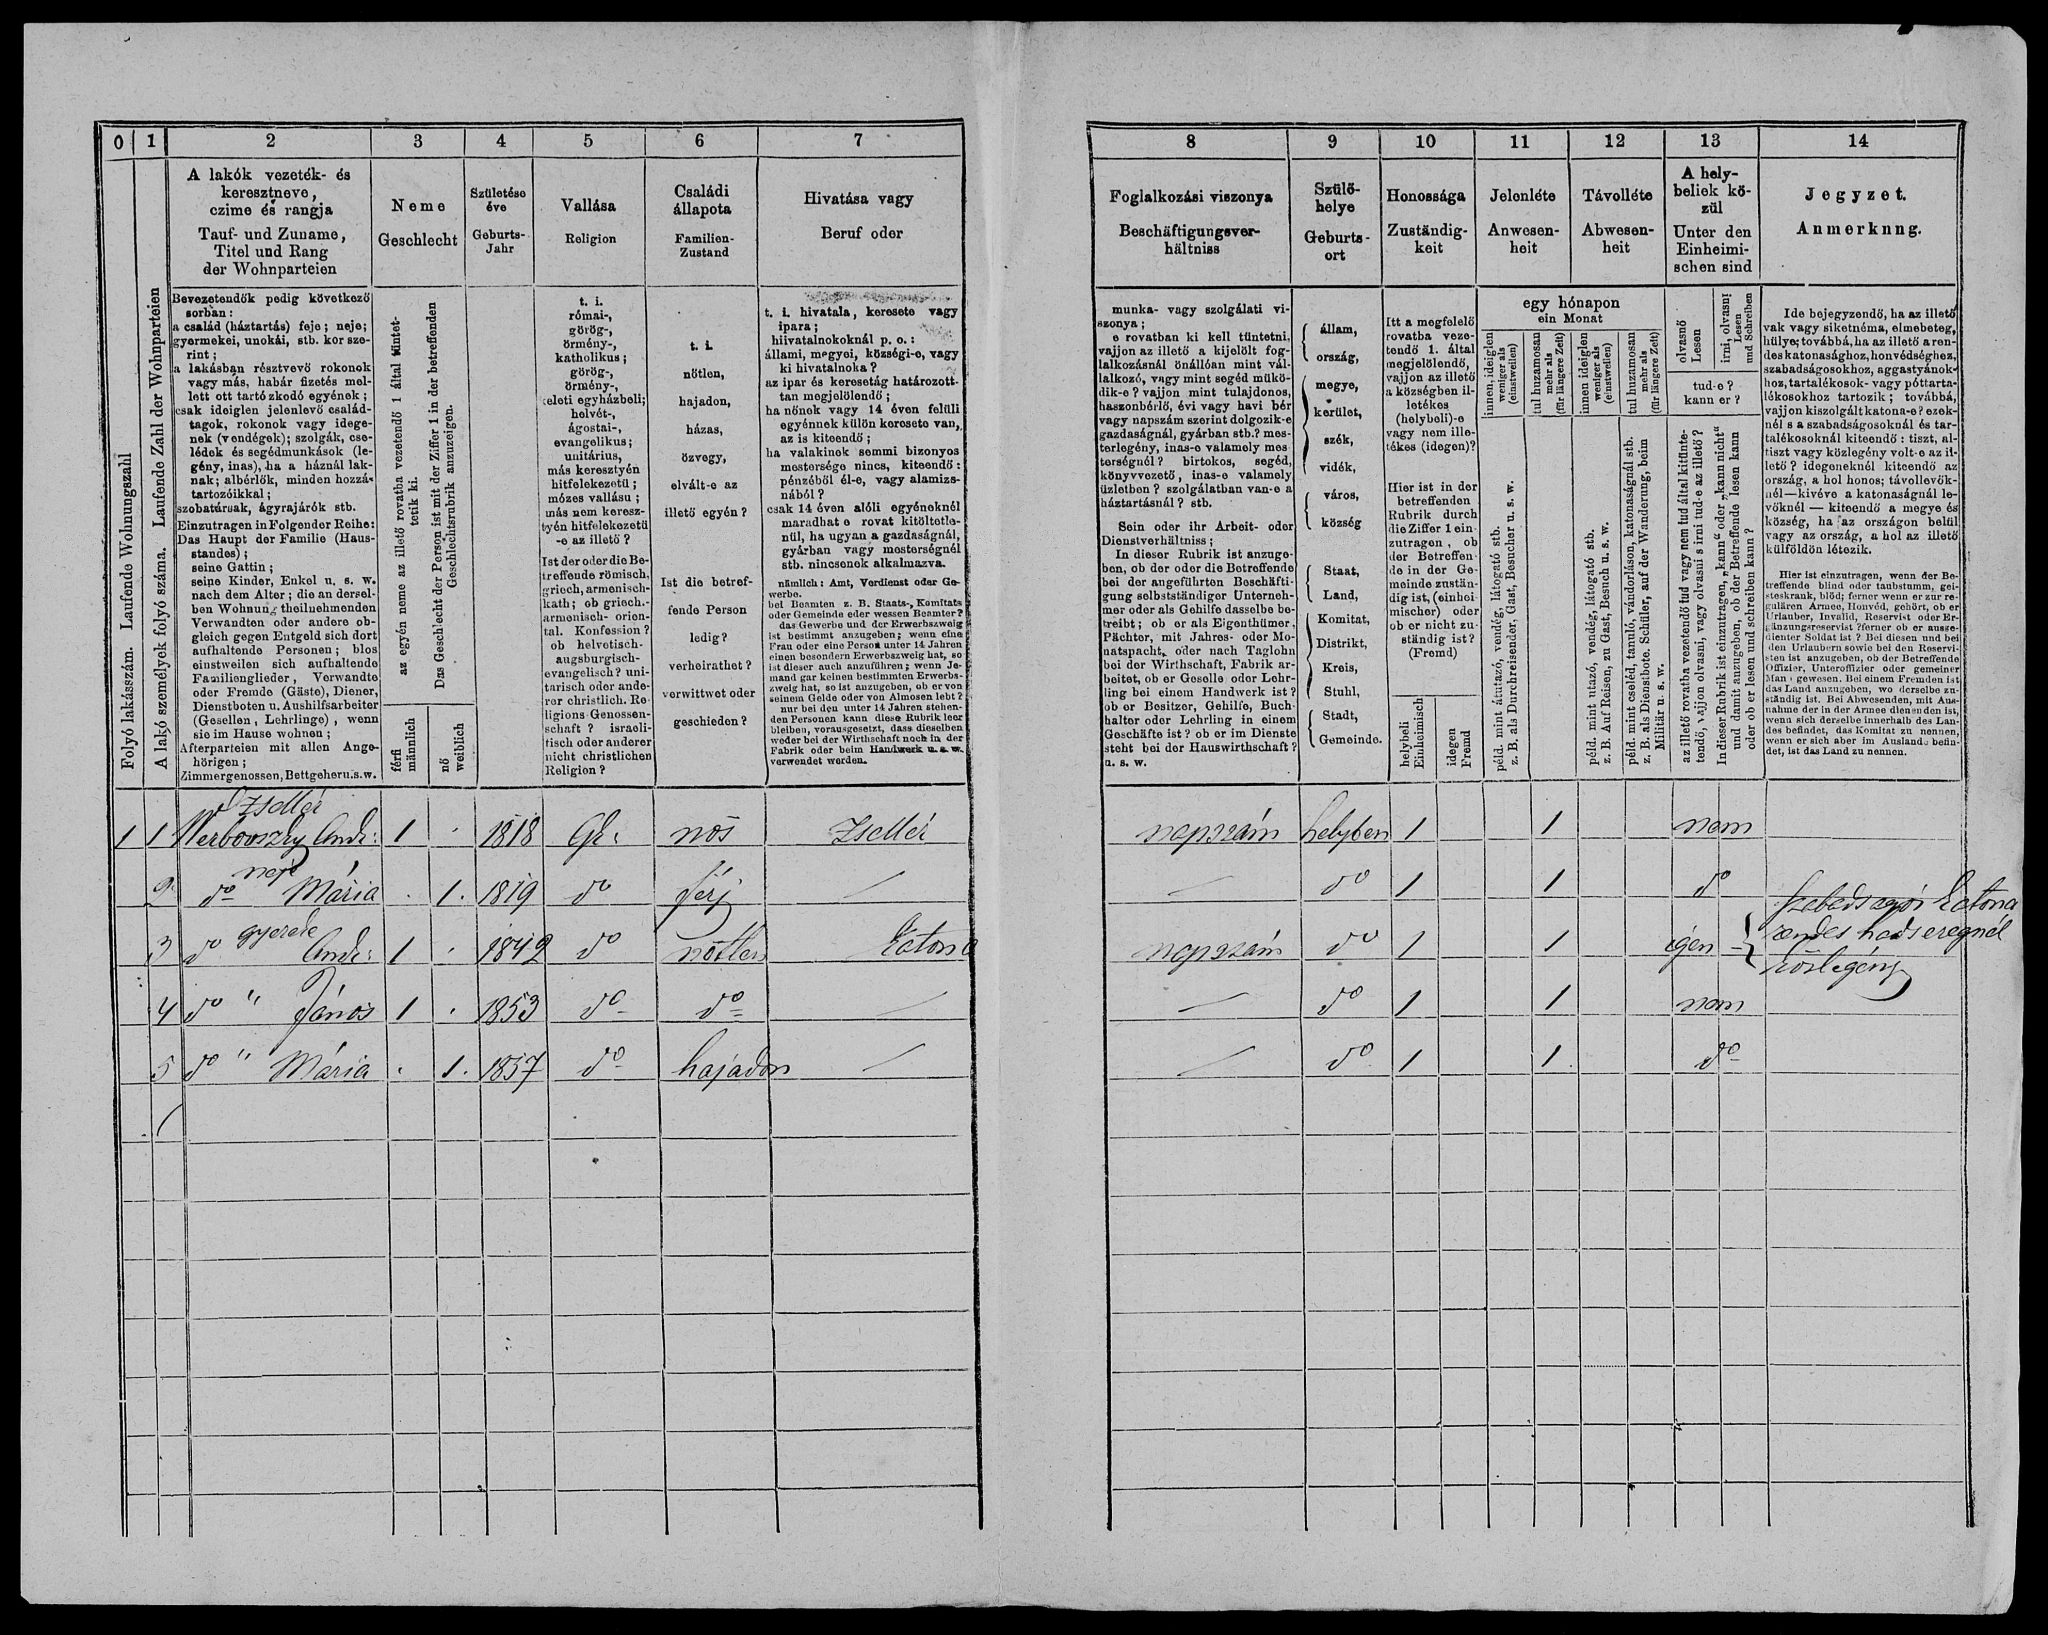 0 1 2 3 4 5 6 7
A lakók vezeték- és
keresztneve,
czime és rangja
Tauf- und Zuname,
Titel und Rang
der Wohnparteien
Neme
Geschlecht
Születése
éve
Geburts-
Jahr
Vallása
Religion
Családi
állapota
Familien-
Zustand
Hivatása vagy
Beruf oder
Folyó lakásszám. Laufende Wohnungszahl
A lakó személyek folyó száma. Laufende Zahl der Wohnparteien
Bevezetendők pedig következő
sorban:
a család (háztartás) feje; neje;
gyermekei, unokái, stb. kor sze-
rint;
a lakásban résztvevő rokonok
vagy más, habár fizetés mel-
lett ott tartózkodó egyének;
csak ideiglen jelenlevő család-
tagok, rokonok vagy idege-
nek (vendégek); szolgák, cse-
lédek és segédmunkások (le-
gény, inas), ha a háznál lak-
nak; albérlők, minden hozzá-
tartozóikkal;
szobatársak, ágyrajárók stb.
Einzutragen in Folgender Reihe:
Das Haupt der Familie (Haus-
standes);
seine Gattin;
seine Kinder, Enkel u. s. w.
nach dem Alter; die an dersel-
ben Wohnung theilnehmenden
Verwandten oder andere ob-
gleich gegen Entgeld sich dort
aufhaltende Personen; blos
einstweilen sich aufhaltende
Famillenglieder, Verwandte
oder Fremde (Gäste), Diener,
Dienstboten u. Aushilfsarbeiter
(Gesellen, Lehrlinge), wenn
sie im Hause wohnen;
Afterparteien mit allen Ange-
hörigen;
Zimmergenossen, Bettgeher u. s. w.
az egyén neme az illető rovatba vezetendő 1 által tüntet-
tetik ki.
Das Geschlecht der Person ist mit der Ziffer 1 in der betreffenden
Geschlechtsrubrik anzuzeigen.
férfi
männlich
nő
weiblich
t. i.
római-,
görög-,
örmény-,
katholikus;
görög-,
örmény-,
keleti egyházbeli;
helvét-,
ágostai-,
evangelikus;
unitárius,
más keresztyén
hitfelekezetü;
mózes vallásu;
más nem keresz-
tyén hitfelekezetü
-e az illető?
Ist der oder die Be-
treffende römisch,
griech, armenisch-
kath; ob griech.-
armenisch- orien-
tal. Konfession?
ob helvetisch-
augsburgisch-
evangelisch? uni-
tarisch oder ande-
rer christlich. Re-
ligions-Genossen-
schaft? israeli-
tisch oder anderer
nicht christlichen
Religion?
t. i.
nőtlen,
hajadon,
házas,
özvegy,
elvált-e az
illető egyén?
Ist die betref-
fende Person
ledig?
verheirathet?
verwittwet oder
geschieden?
t. i. hivatala, keresete vagy
ipara;
hiivatalnokoknál p. o.:
állami, megyei, községi-e, vagy
ki hivatalnoka?
az ipar és keresetág határozott-
tan megjelölendő;
ha nőnek vagy 14 éven felüli
egyénnek külön keresete van,
az is kiteendő;
ha valakinek semmi bizonyos
mestersége nincs, kiteendő:
pénzéből él-e, vagy alamizs-
nából?
csak 14 éven alóli egyéneknél
maradhat e rovat kitöltetle-
nül, ha ugyan a gazdaságnál,
gyárban vagy mesterségnél
stb. nincsenek alkalmazva.
nämlich: Amt, Verdienst oder Ge-
werbe.
bei Beamten z. B. Staats-, Komitats
oder Gemeinde oder wessen Beamter?
das Gewerbe und der Erwerbszweig
ist bestimmt anzugeben; wenn eine
Frau oder eine Person unter 14 Jahren
einen besondern Erwerbszweig hat, so
ist dieser auch anzuführen; wenn Je-
mand gar keinen bestimmten Erwerbs-
zweig hat, so ist anzugeben, ob er von
seinem Gelde oder von Almosen lebt?
nur bei den unter 14 Jahren stehen-
den Personen kann diese Rubrik leer
bleiben, vorausgesetzt, dass dieselben
weder bei der Wirthschaft noch in der
Fabrik oder beim Handwerk u. s. w.
verwendet werden.
8 9 10 11 12 13 14
Foglalkozási viszonya
Beschäftigungsver-
hältniss
Szülő-
helye
Geburts-
ort
Honossága
Zuständig-
keit
Jelenléte
Anwesen-
heit
Távolléte
Abwesen-
heit
A hely-
beliek kö-
zül
Unter den
Einheimi-
schen sind
Jegyzet.
Anmerknng.
munka- vagy szolgálati vi-
szonya;
e rovatban ki kell tüntetni,
vajjon az illető a kijelölt fog-
lalkozásnál önállóan mint vál-
lalkozó, vagy mint segéd mükö-
dik-e? vajjon mint tulajdonos,
haszonbérlő, évi vagy havi bér
vagy napszám szerint dolgozik-e
gazdaságnál, gyárban stb.? mes-
terlegény, inas-e valamely mes-
terségnél? birtokos, segéd,
könyvvezető, inas-e valamely
üzletben? szolgálatban van-e a
háztartásnál? stb.
Sein oder ihr Arbeit- oder
Dienstverhältniss;
In dieser Rubrik ist anzuge-
ben, ob der oder die Betreffende
bei der angeführten Beschäfti-
gung selbstständiger Unterneh-
mer oder als Gehilfe dasselbe be-
treibt; ob er als Eigenthümer,
Pächter, mit Jahres- oder Mo-
natspacht, oder nach Taglohn
bei der Wirthschaft, Fabrik ar-
beitet, ob er Geselle oder Lehr-
ling bei einem Handwerk ist?
ob er Besitzer, Gehilfe, Buch-
halter oder Lehrling in einem
Geschäfte ist? ob er im Dienste
steht bei der Hauswirthschaft?
u. s. w.
állam,
ország,
megye,
kerület,
szék,
vidék,
város,
község
Staat,
Land,
Komitat,
Distrikt,
Kreis,
Stuhl,
Stadt,
Gemeinde.
Itt a megfelelő
rovatba veze-
tendő 1. által
megjelölendő,
vajjon az illető
a községben il-
letékes
(helybeli)-e
vagy nem ille-
tékes (idegen)?
Hier ist in der
betreffenden
Rubrik durch
die Ziffer 1 ein-
zutragen, ob
der Betreffen-
de in der Ge-
meinde zustän-
dig ist, (einhei-
mischer) oder
ob er nicht zu-
ständig ist?
(Fremd)
helybeli
Einheimisch
idegen
Fremd
egy hónapon
ein Monat
innen, ideiglen
weniger als
(einstweilen)
tul huzamosan
mehr als
(für längere Zeit)
innen ideiglen
weniger als
(einstweilen)
tul huzamosan
mehr als
(für längere Zeit)
péld. mint átutazó, vendég, látogató stb.
z. B. als Durchreisender, Gast, Besucher u. s. w.
péld. mint utazó, vendég, látogató stb.
z. B. Auf Reisen, zu Gast, Besuch u. s. w.
péld. mint cseléd, tanuló, vándorláson, katonaságnál stb.
z. B. als Dienstbote, Schüler, auf der Wanderung, beim
Militär u. s. w.
olvasnő
Lesen
irni, olvasni
Lesen
und Schreiben
tud-e?
kann er?
az illető rovatba vezetendő tud vagy nem tud által kitünte-
tendő, vajjon olvasni, vagy olvasni s irni tud-e az illető?
In dieser Rubrik ist einzutragen, „kann“ oder „kann nicht“
und damit anzugeben, ob der Betreffende lesen kann
oder ob er lesen und schreiben kann?
Ide bejegyzendő, ha az illető
vak vagy siketnéma, elmebeteg,
hülye; továbbá, ha az illető a ren-
des katonasághoz, honvédséghez,
szabadságosokhoz, aggastyánok-
hoz, tartalékosok- vagy póttarta-
lékosokhoz tartozik; továbbá,
vajjon kiszolgált katona-e? ezek-
nél s a szabadságosoknál és tar-
talékosoknál kiteendő: tiszt, al-
tiszt vagy közlegény volt-e az il-
lető? idegeneknél kiteendő az
ország, a hol honos; távollévők-
nél—kivéve a katonaságnál le-
vőknél — kiteendő a megye és
község, ha az országon belül
vagy az ország, a hol az illető
külföldön létezik.
Hier ist einzutragen, wenn der Be-
treffende blind oder taubstumm, gei-
steskrank, blöd; ferner wenn er zur re-
gulären Armee, Honvéd, gehört, ob er
Urlauber, Invalid, Reservist oder Er-
gänzungsreservist? ferner ob er ausge-
dienter Soldat ist? Bei diesen und bei
den Urlaubern sowie bei den Reservi-
sten ist anzugeben, ob der Betreffende
Offizier, Unteroffizier oder gemeiner
Man gewesen. Bei einem Fremden ist
das Land anzugeben, wo derselbe zu-
ständig ist. Bei Abwesenden, mit Aus-
nahme der in der Armee dienenden ist,
wenn sich derselbe innerhalb des Lan-
des befindet, das Komitat zu nennen,
wenn er sich aber im Auslande befin-
det, ist das Land zu nennen.
Zsellér
1 1 Werbovszky Andr: 1 1818 Gk. nős Zsellér napszám helyben 1 1 nem
neje
2 do Mária 1. 1819 do férj — — do 1 1 do
gyereke
3 do Andr: 1 1842 do nőtlen katona napszám do 1 1 igen –
szabadságos katona
rendes hadseregnél
közlegény
4 do " János 1 1853 do do — — do 1 1 nem
5 do " Mária 1. 1857 do hajadon — — do 1 1 do